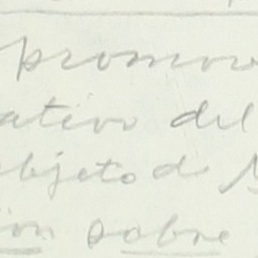 promov
ativo del
objeto de
ión sobre